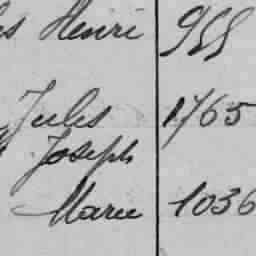 es Henri 955
Jules 1765
Joseph
Marie 1036